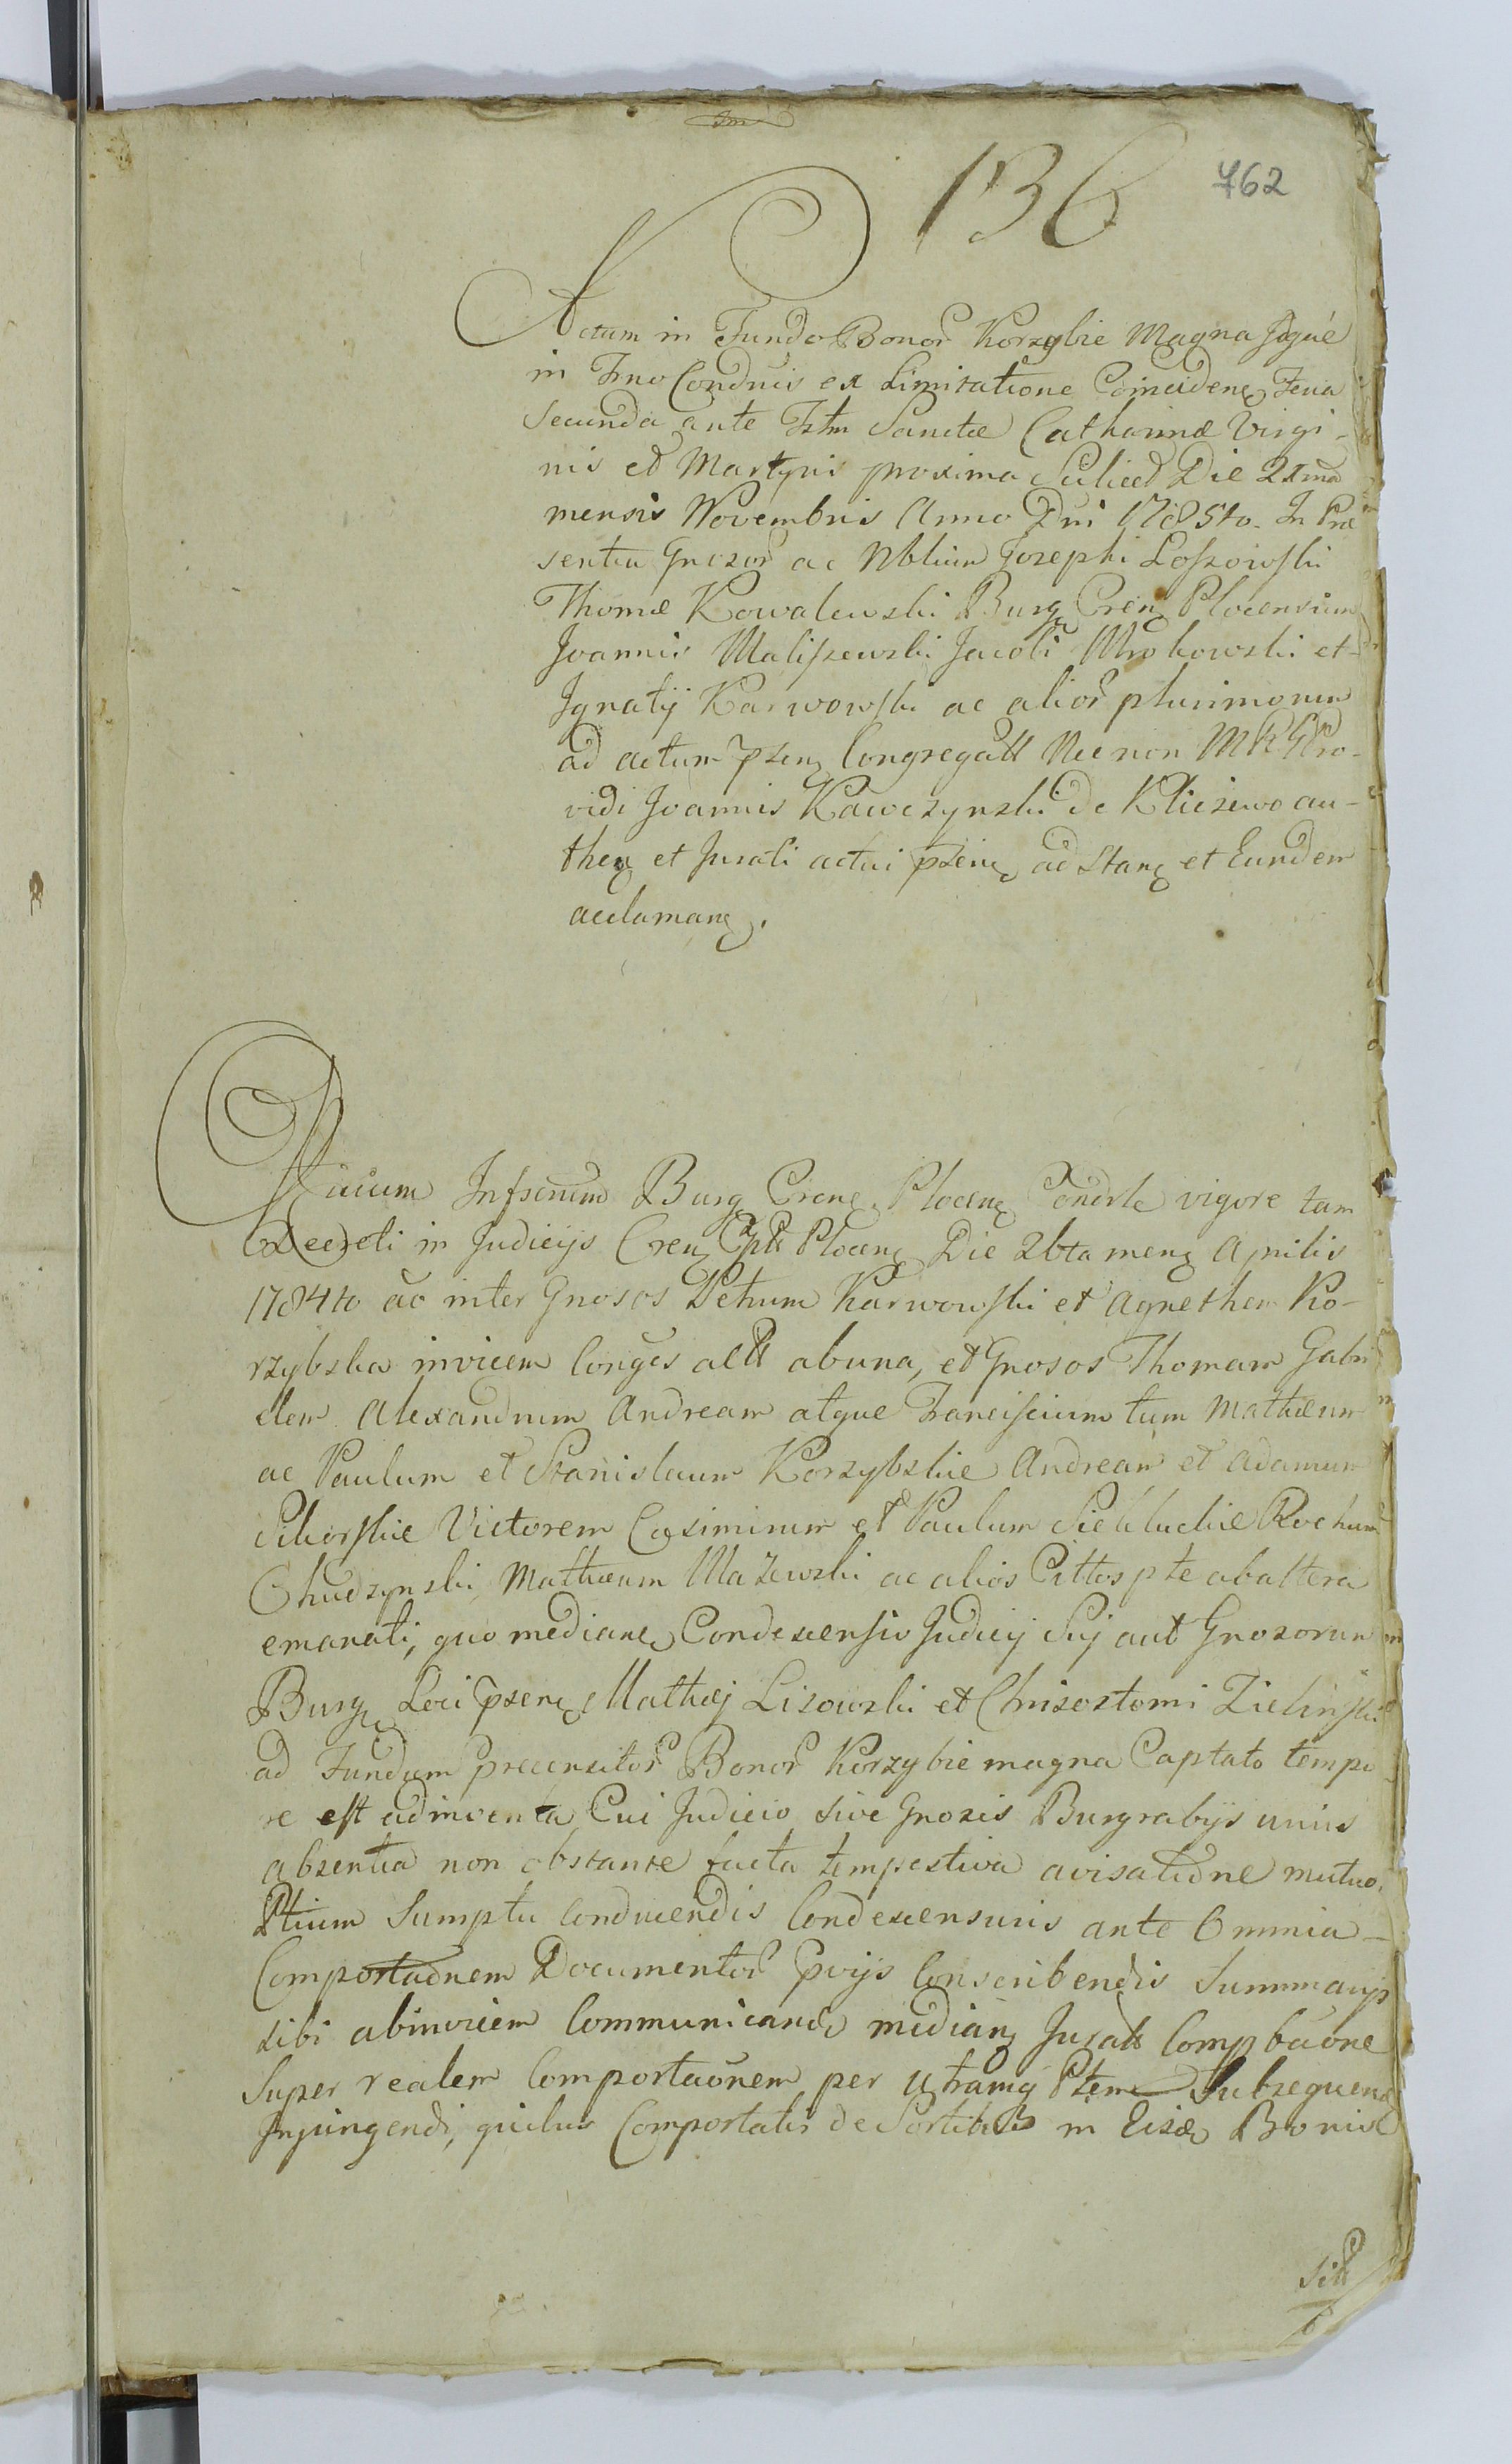 136
762
Actum in Fundo Bonor Korzybie Magna Idque
in Trno Conducis ex Limitatione Coincidens Feria
Secunda ante Fstm Sanctæ Catharinæ Virgi-
nis et Martyris proxima Scilicet Die 21ma
mensis Novembris Anno Dni 1785to. In Præ
sentia Gnosor ac Nblium Josephi Loszowski
Thomæ Kowalewski Burg Cren Plocensium
Joannis Maliszewski Jacobi Mrokowski et
Ignatij Karwowski ac alior plurimorum
ad actum pseng Congregatt Nec non Pro-
vidi Joannis Kawczynski de Kliczewo au-
then et Jurati actui pseng adstang et Eundem
acclamang.
Judicium Infsentum Burg Crens Plocens Condsle vigore tam
Decreti in Judicijs Crens Cptt Plocens Die 26ta mens Aprilis
1784to ao inter Gnosos Petrum Karwowski et Agnethem Ko-
rzybska invicem Conges actt abuna, et Gnosos Thomam Gabri
elem Alexandrum Andream atque Franciscum tum Mathæum
ac Paulum et Stanislaum Korzybskie Andream et Adamum
Sikorskie Victorem Casimirum et Paulum Siekluckie Rochum
Chudzynski Mathæum Mazewski ac alios Cittos pte ab altera
emanati, quo medians Condescensio Judicij Sui aut Gnosorum
Burg Loci psens Mathæj Lisowski et Chrisostomi Zielinski
ad Fundum precensitor Bonor Korzybie magna Captato tempo
re est adinventa Cui Judicio sive Gnosis Burgrabijs unius
absentia non obstante facta tempestiva avisatione mutuo
Ptium Sumptu conducendis Condescensuris ante Omnia
Comportaonem Documentor pvijs Conscribendis Summarijs
sibi abinvicem Communicands medians Juratt Compbaone
Super realem Comportaonem per utramq Ptem Subsequend
Injungendi, quibus Comportatis de Sortibus in Eisd Bonis
Sitt